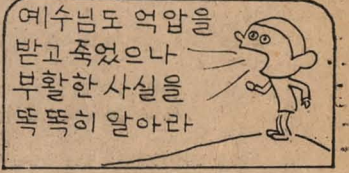 예수님도 억압을
받고 죽었으나
부활한 사실을
똑똑히 알아라